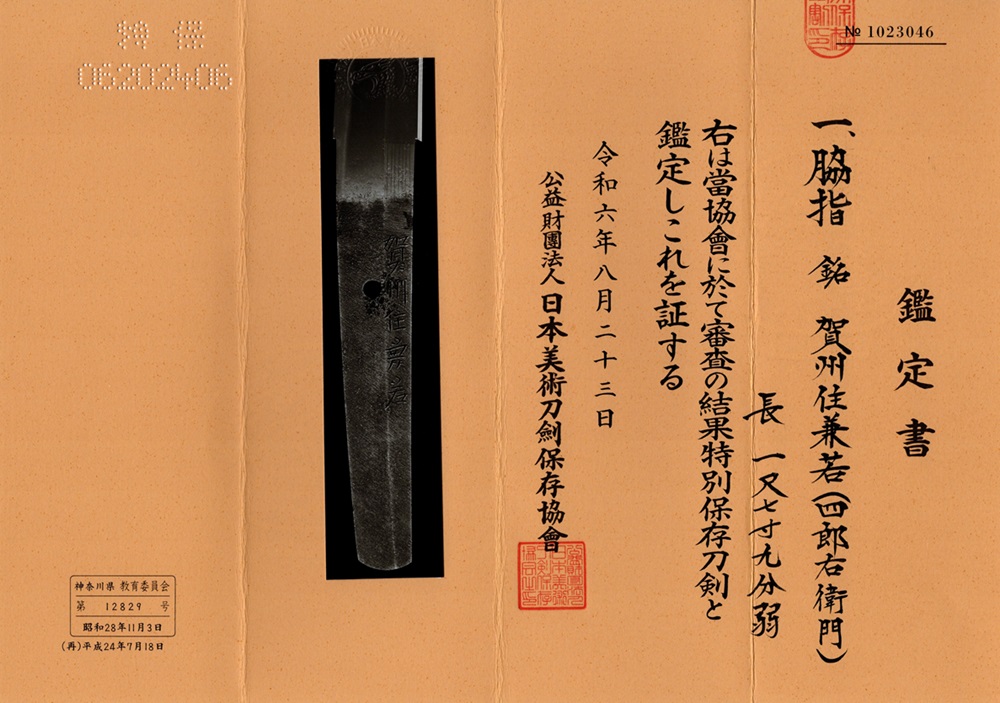 № 1023046
鑑定書
一、脇指 銘 賀州住兼若(四郎右衛門)
長 一尺七寸九分弱
右は當協會に於て審査の結果特別保存刀剣と
鑑定しこれを証する
令和六年八月二十三日
公益財團法人日本美術刀劍保存協會
賀州住兼若
特保
06202406
神奈川県 教育委員会
第 12829 号
昭和28年11月3日
(再)平成24年7月18日